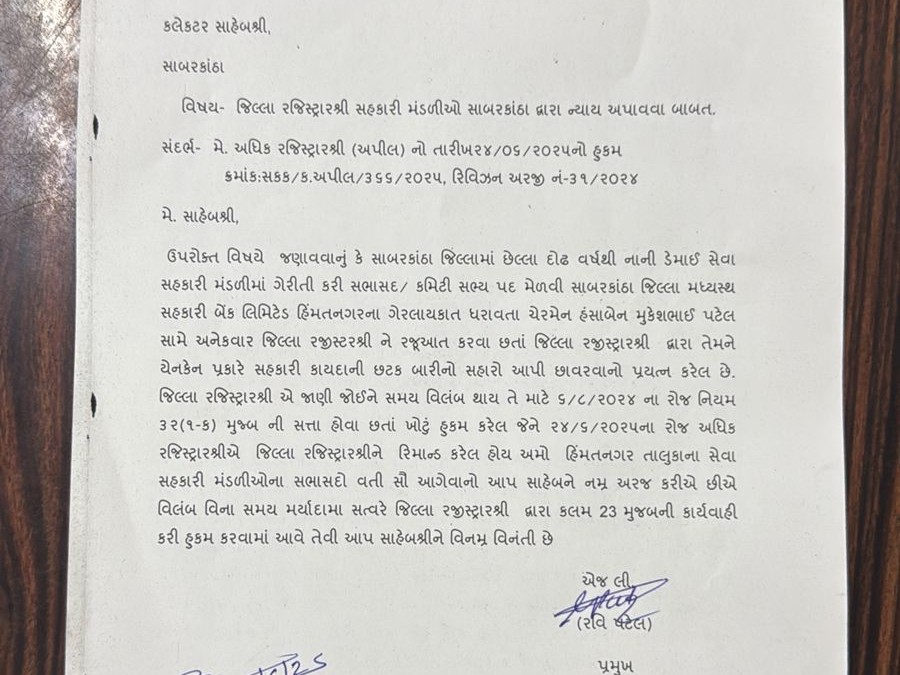 કલેકટર સાહેબશ્રી,
સાબરકાંઠા
વિષય- જિલ્લા રજિસ્ટ્રારશ્રી સહકારી મંડળીઓ સાબરકાંઠા દ્વારા ન્યાય અપાવવા બાબત.
સંદર્ભ- મે. અધિક રજિસ્ટ્રારશ્રી (અપીલ) નો તારીખ૨૪/૦૬/૨૦૨૫નો હુકમ
ક્રમાંક:સકક/ક.અપીલ/૩૬૬/૨૦૨૫, રિવિઝન અરજી નં-૩૧/૨૦૨૪
મે. સાહેબશ્રી,
ઉપરોક્ત વિષયે જણાવવાનું કે સાબરકાંઠા જિલ્લામાં છેલ્લા દોઢ વર્ષથી નાની ડેમાઈ સેવા
સહકારી મંડળીમાં ગેરીતી કરી સભાસદ/ કમિટી સભ્ય પદ મેળવી સાબરકાંઠા જિલ્લા મધ્યસ્થ
સહકારી બેંક લિમિટેડ હિંમતનગરના ગેરલાયકાત ધરાવતા ચેરમેન હંસાબેન મુકેશભાઈ પટેલ
સામે અનેકવાર જિલ્લા રજીસ્ટરશ્રી ને રજૂઆત કરવા છતાં જિલ્લા રજીસ્ટ્રારશ્રી દ્વારા તેમને
યેનકેન પ્રકારે સહકારી કાયદાની છટક બારીનો સહારો આપી છાવરવાનો પ્રયત્ન કરેલ છે.
જિલ્લા રજિસ્ટ્રારશ્રી એ જાણી જોઈને સમય વિલંબ થાય તે માટે ૬/૮/૨૦૨૪ ના રોજ નિયમ
૩૨(૧-ક) મુજબ ની સત્તા હોવા છતાં ખોટું હુકમ કરેલ જેને ૨૪/૬/૨૦૨૫ના રોજ અધિક
રજિસ્ટ્રારશ્રીએ જિલ્લા રજિસ્ટ્રારશ્રીને રિમાન્ડ કરેલ હોય અમો હિંમતનગર તાલુકાના સેવા
સહકારી મંડળીઓના સભાસદો વતી સૌ આગેવાનો આપ સાહેબને નમ્ર અરજ કરીએ છીએ
વિલંબ વિના સમય મર્યાદામા સત્વરે જિલ્લા રજીસ્ટ્રારશ્રી દ્વારા કલમ 23 મુજબની કાર્યવાહી
કરી હુકમ કરવામાં આવે તેવી આપ સાહેબશ્રીને વિનમ્ર વિનંતી છે
એજ લી
(રવિ પટેલ)
પ્રમુખ